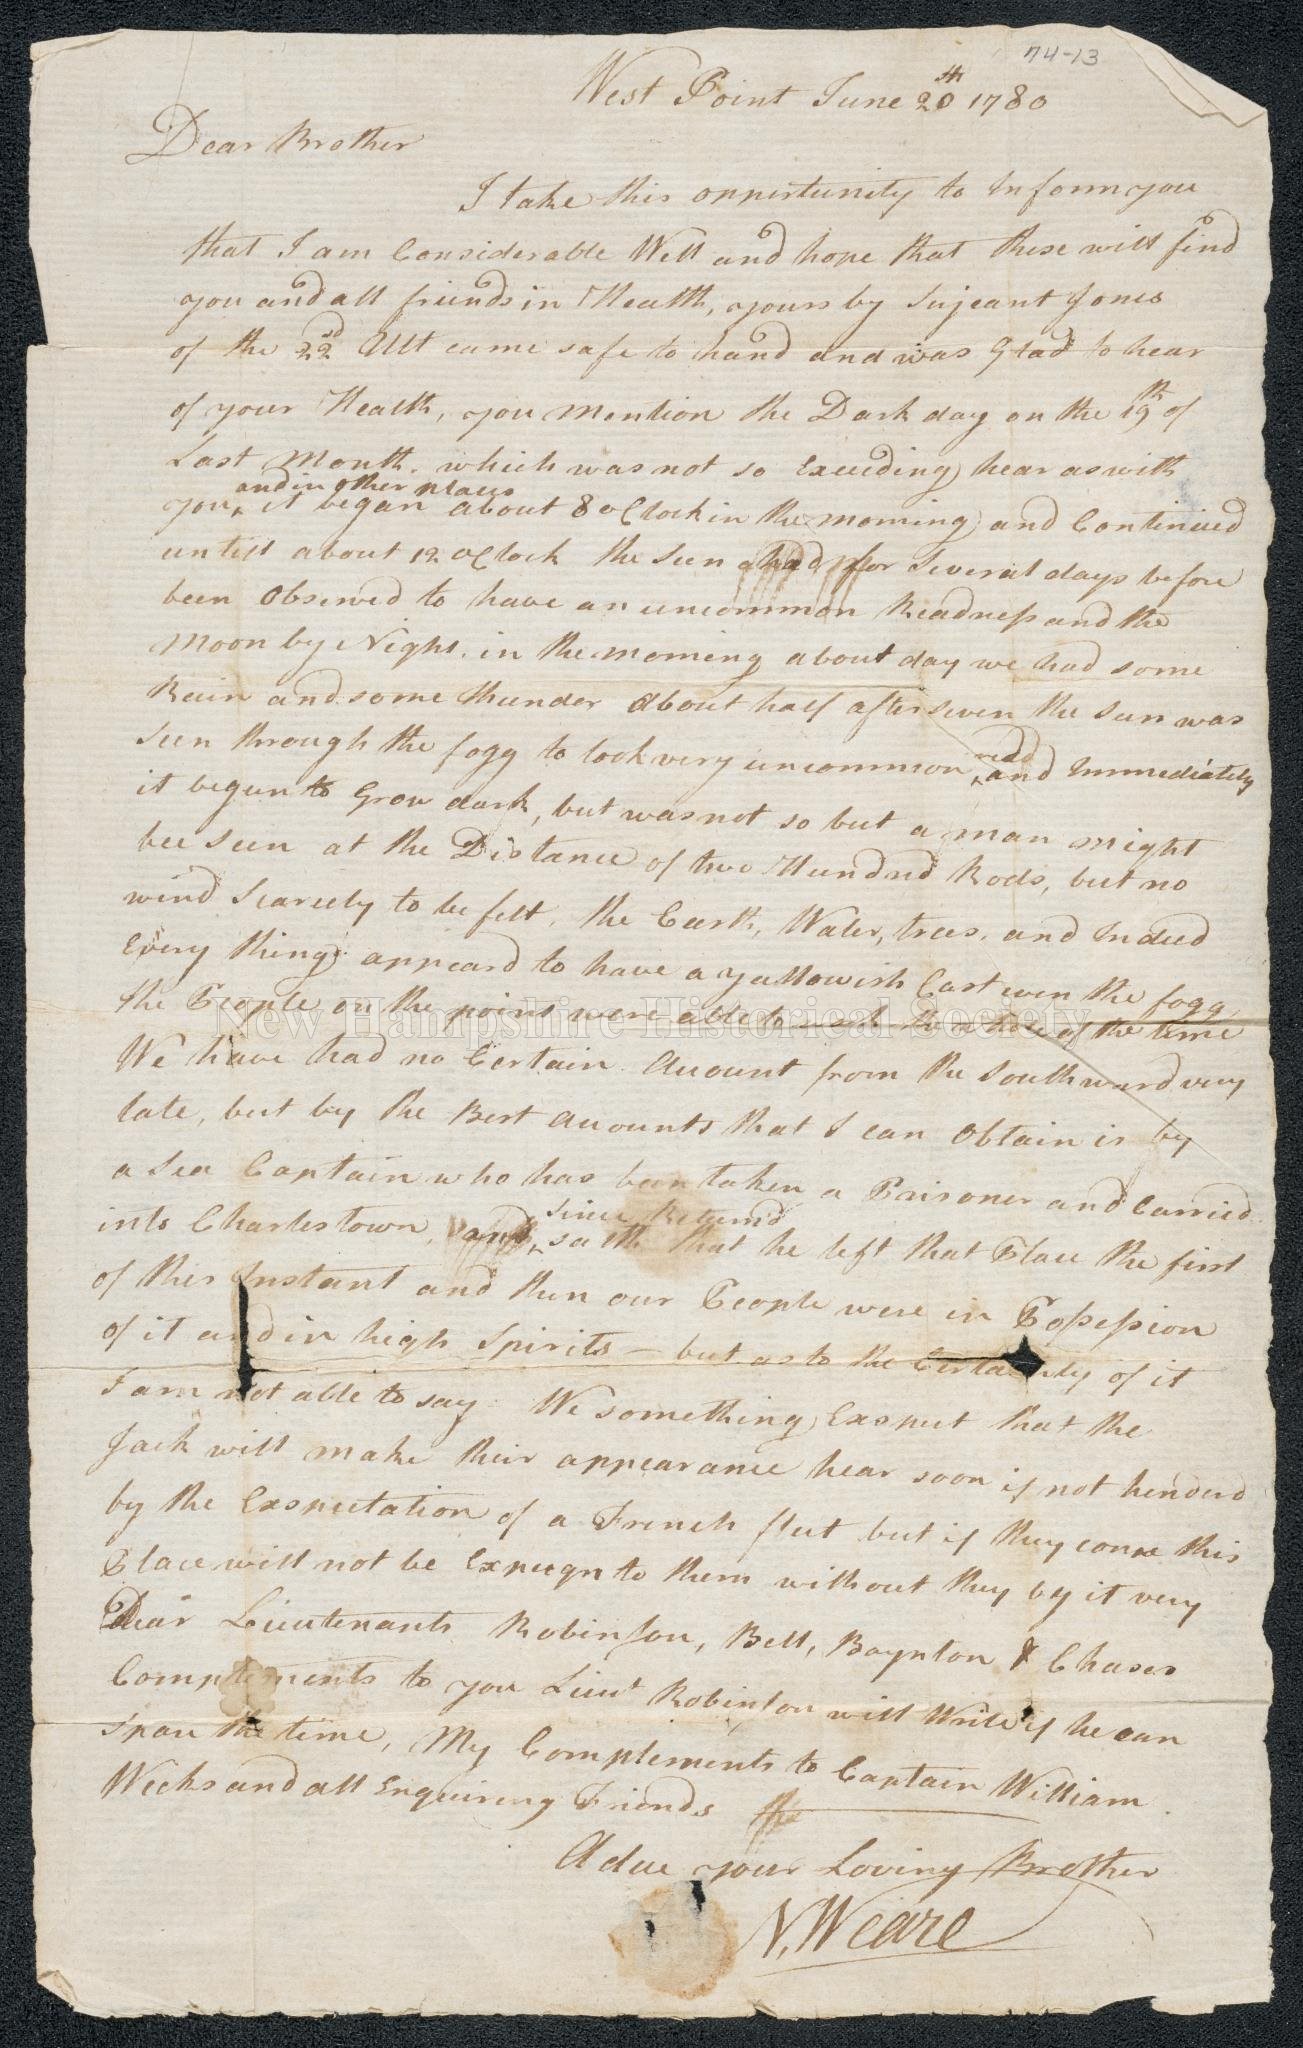 74-13
West Point June 20th 1780
Dear Brother
I take this opportunity to Inform you
that I am Considerable Well and hope that these will find
you and all friends in Health, yours by Sujeant Jones
of the 22sd Ult came safe to hand and was Glad to hear
of your Health, you mention the Dark day on the 19th of
Last Month. which was not so Exceeding hear as with
and in other places
you, it began about 8 oClock in the morning and Continued
untill about 12 oClock the Sun had for Several days before
been Observed to have an uncommon Readness and the
Moon by Night. in the morning about day we had some
Rain and some thunder about half after seven the Sun was
redd
Seen through the fogg to look very uncommon and Immediately
it begun to Grow dark, but was not so but a man might
bee Seen at the Distance of two Hundred Rods, but no
wind Scarcely to be felt, the Earth, Water, trees, and Indeed
Every thing appeard to have a yallowish Cast even the fogg
the People on the point were able to work the whole of the time
We have had no Certain Account from the Southward very
late, but by the Best Accounts that I can Obtain is by
a Sea Captain who has been taken a Prisoner and Carried
Since Returnd
into Charlestown, and saith that he left that Place the first
of this Instant and then our People were in Possession
of it and in high Spirits — but as to the Certainty of it
I am not able to say. We something Exspect that the
Jack will make their appearance hear soon if not henderd
by the Exspectation of a French fleet but if they come this
Place will not be Expugn to them without they by it very
Dear Lieutenants Robinson, Bell, Boynton & Chases
Complements to you Lieut Robinson will Write if he can
Spare the time, My Complements to Captain William
Weeks and all Enquiring Friends
Adue your Loving Brother
N. Weare
New Hampshire Historical Society